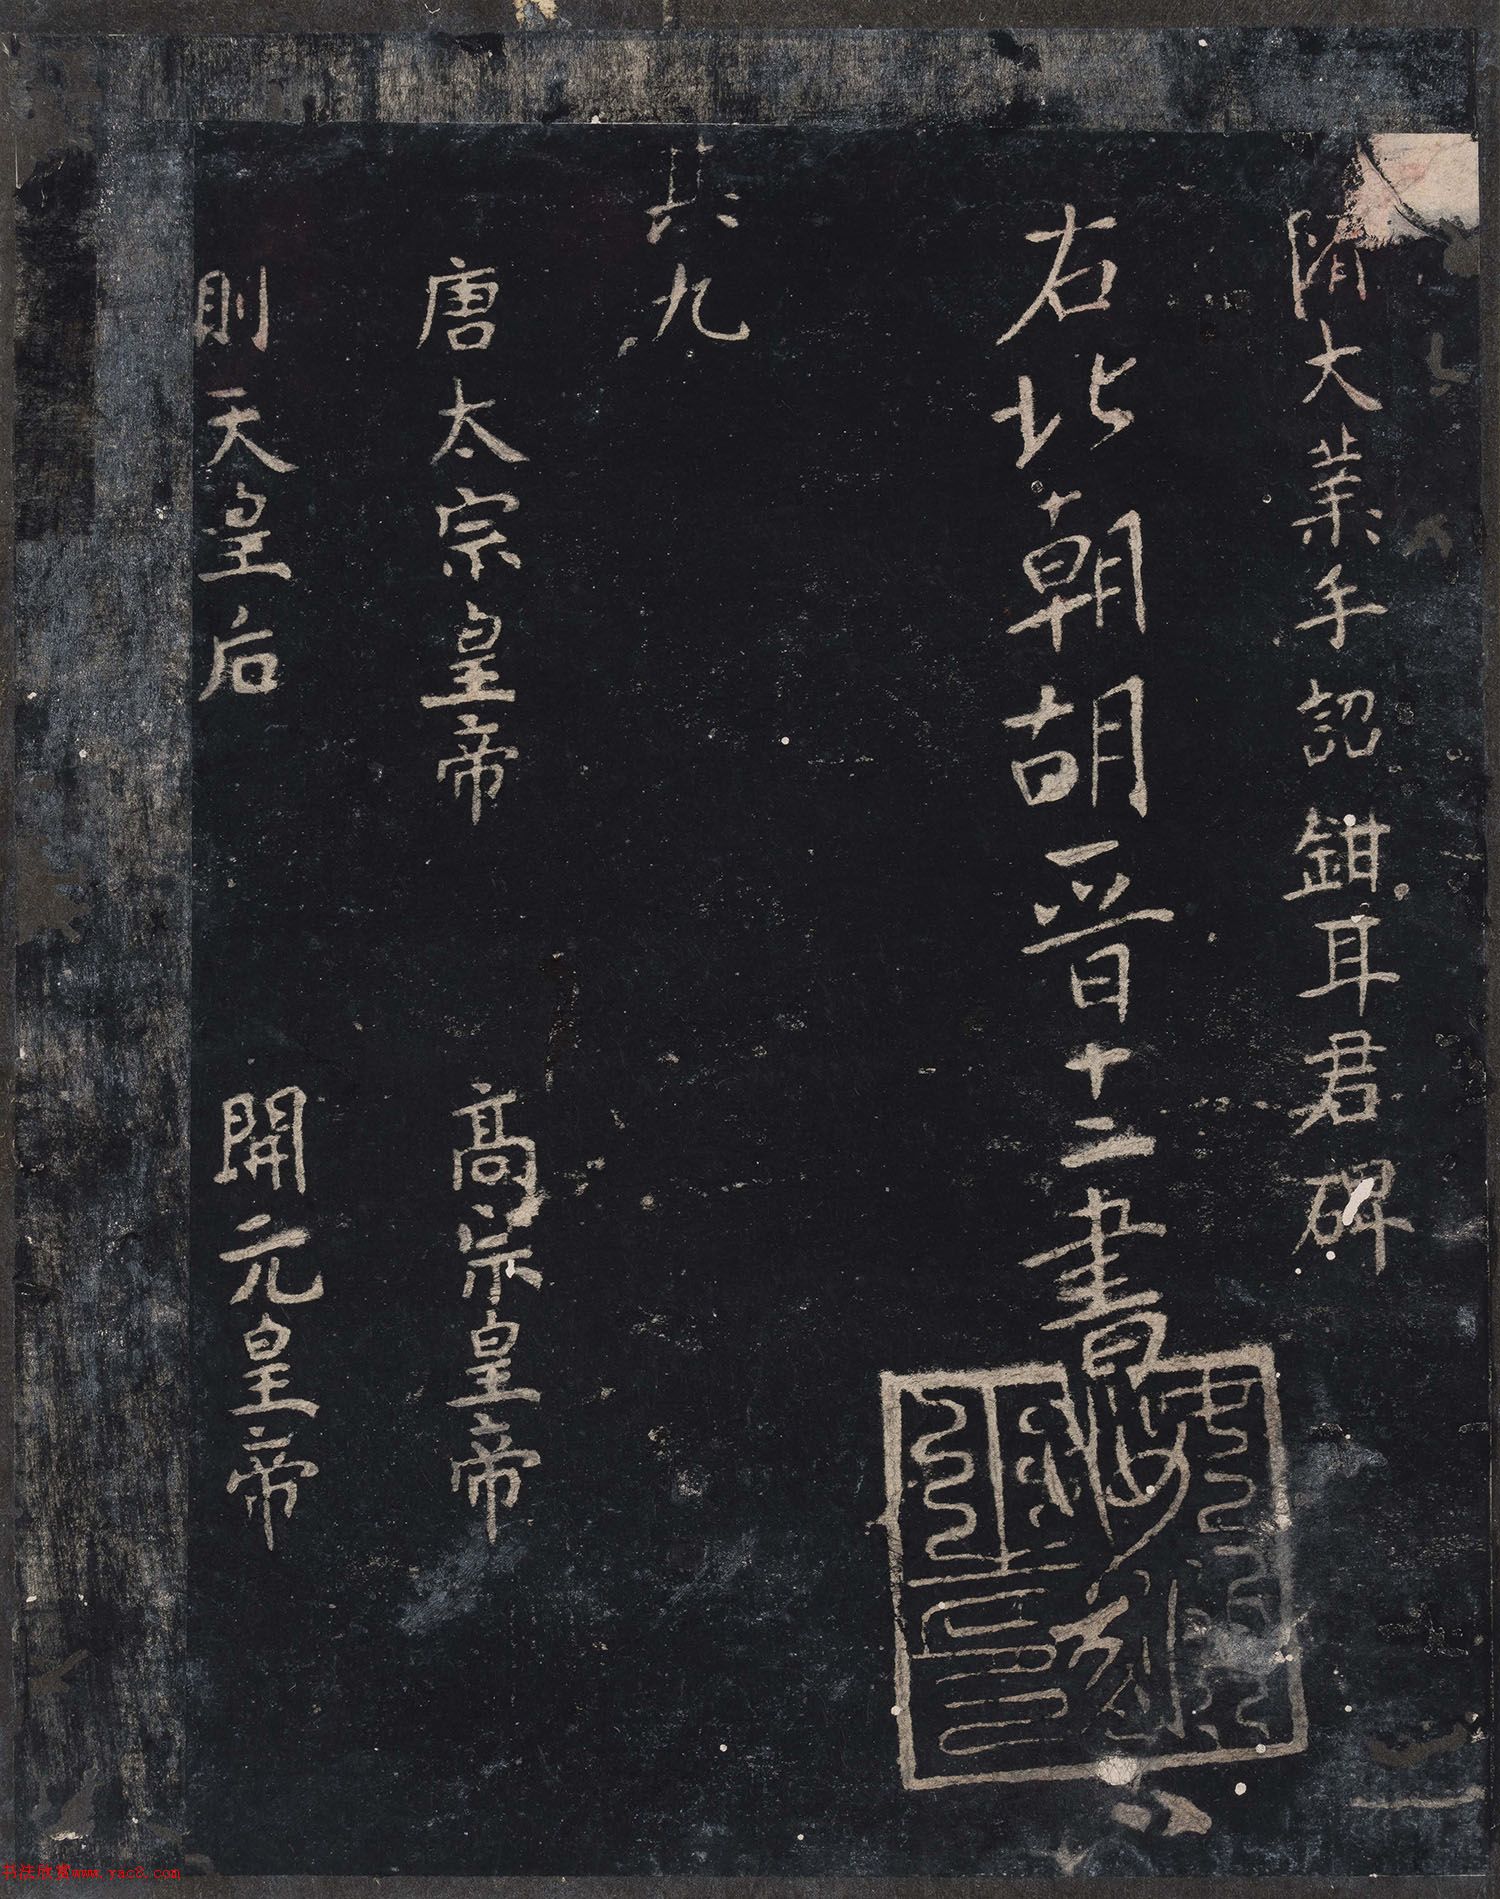 隋大業手詔鉗耳君碑
右北朝胡晋十二書
其九
唐太宗皇帝 高宗皇帝
則天皇后 開元皇帝
书法欣赏www.yac8.com